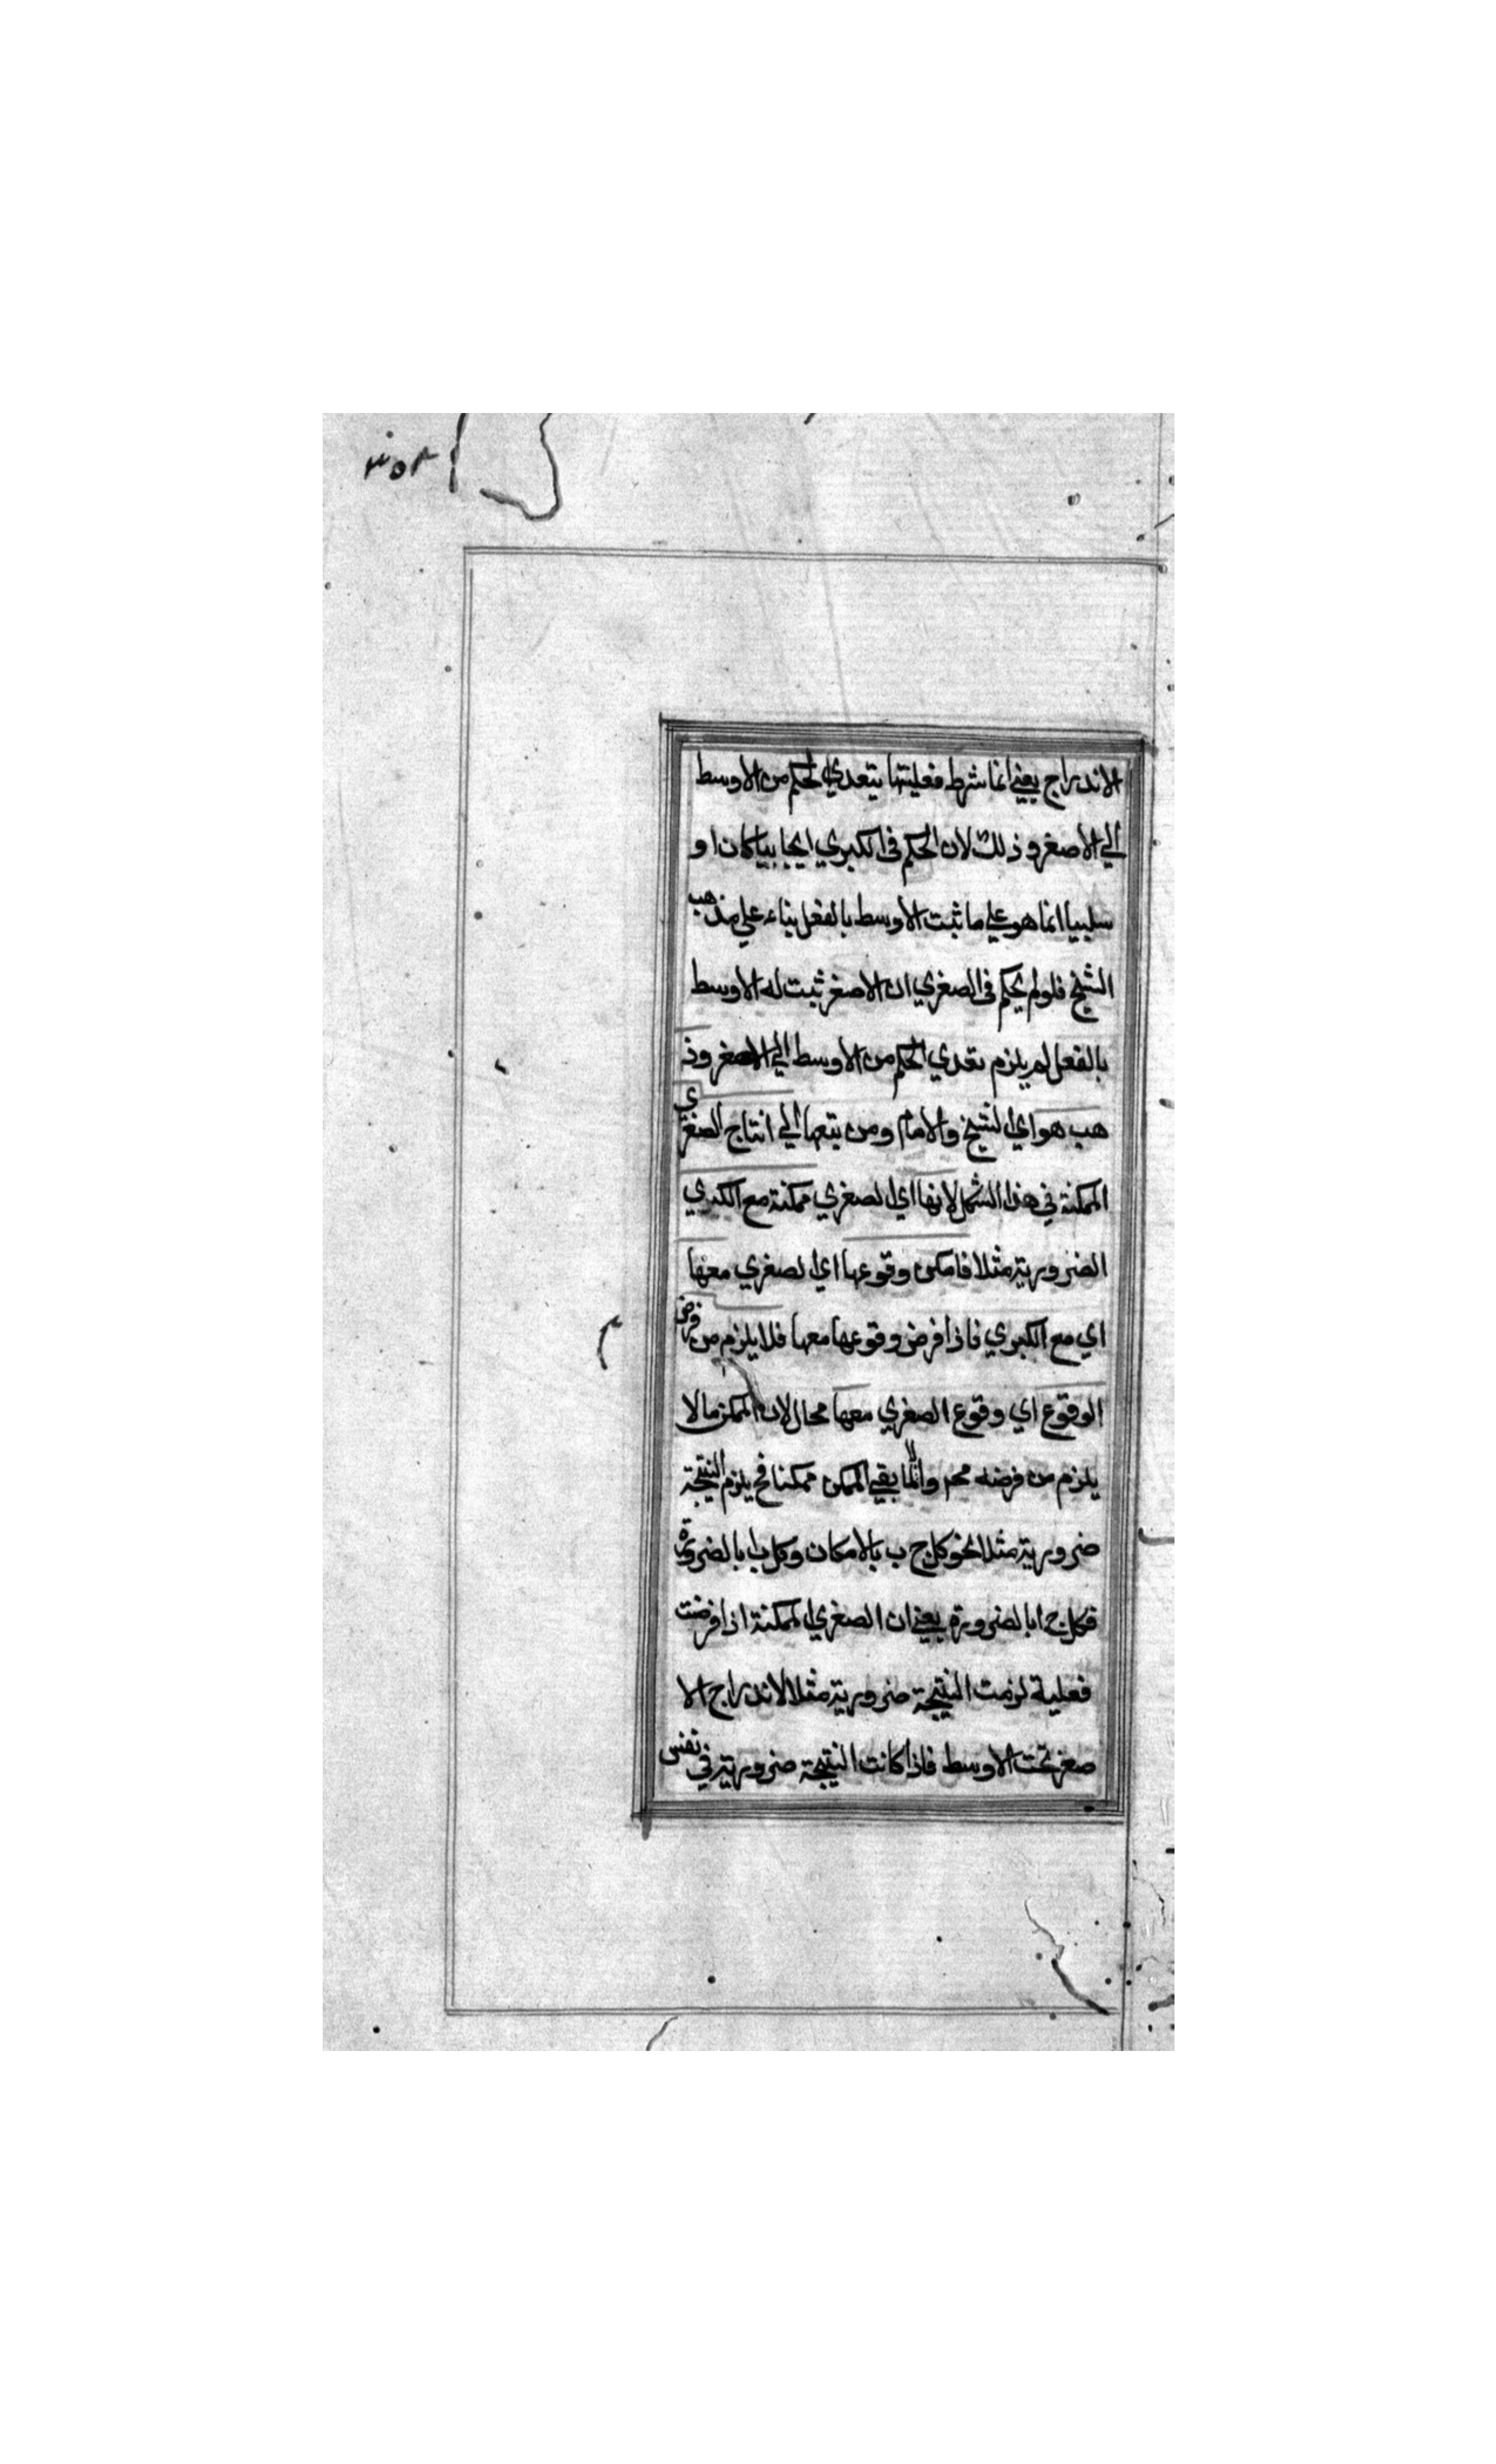 ٣٥٢
الاندراج يعني انما شرط فعليتها يتعدي الحكم من الاوسط
الي الاصغر وذلك لان الحكم في الكبري ايجابيا كان او
سلبيا انما هو علي ما ثبت الاوسط بالفعل بناء علي مذهب
الشيخ فلو لم يحكم في الصغري ان الاصغر ثبت له الاوسط
بالفعل لم يلزم تعدي الحكم من الاوسط الي الاصغر وذ
هب هو اي الشيخ والامام ومن يتبعها الي انتاج الصغري
الممكنة في هذا الشكل لانها اي الصغري ممكنة مع الكبري
الضرورية مثلا فامكن وقوعها اي الصغري معها
اي مع الكبري فاذا فرض وقوعها معها فلا يلزم من فرض
الوقوع اي وقوع الصغري معها محال لان الممكن ما لا
يلزم من فرضه مح والا لما بقي الممكن ممكنا فح يلزم النتيجة
ضرورية مثلا نحو كل ج ب بالامكان وكل ب ا بالضرورة
فكل ج ا بالضرورة يعني ان الصغري الممكنة اذا فرضت
فعلية لزمت النتيجة ضرورية مثلا لاندراج الا
صغر تحت الاوسط فاذا كانت النتيجة ضرورية في نفس